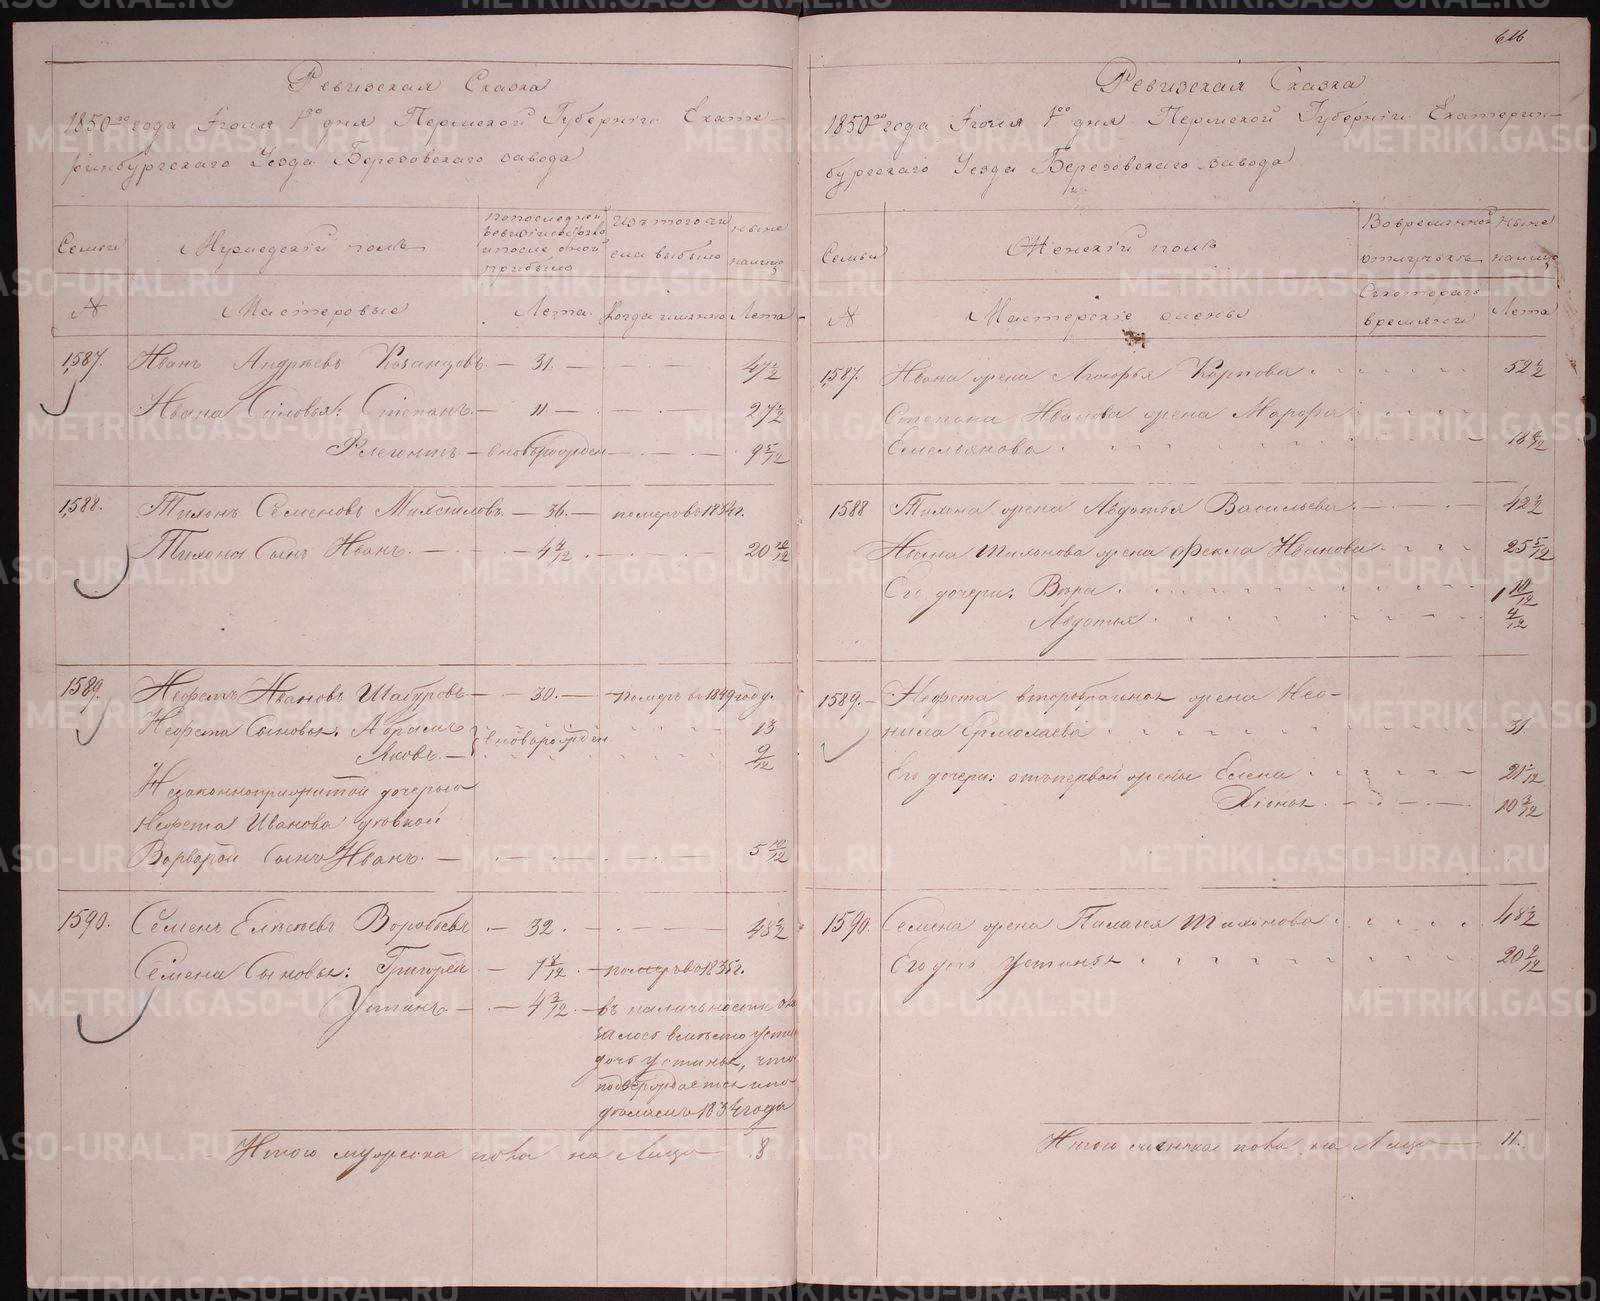 616
Ревизская Сказка
1850го года Іюля 1го дня Пермской Губерніи Екате-
ринбургскаго Уезда Березовскаго завода
Семьи
Мужескій полъ
по последней ревизіи состояло и после оной прибыло
Изъ того числа выбыло
ныне на лицо
№
Мастеровые
Лета
Когда именно
Лета
1587. Иванъ Андреевъ Казанцовъ — 31. — 47 6/12
Ивана Сыновья: Степанъ — 11 — 27 6/12
Флегонтъ — новорожден — 9 5/12
1588. Тихонъ Семеновъ Михайловъ — 36. — помер в 1834 г.
Тихона Сынъ Иванъ. — 4 4/12 20 10/12
1589. Неофетъ Ивановъ Шабуровъ — 30. — помер в 1849 году.
Неофета Сыновья: Абрамъ 13
новорожден
Яковъ. — 9/12
Незаконноприжитой дочерью
Неофета Иванова девкой
Варварой Сынъ Иванъ. — 5 10/12
1590. Семенъ Воробьевъ — 32. — 48 6/12
Семена Сыновья: Григорей — 1 — помер в 1835 г.
Устинъ — 4 3/12 — въ наличности ока-
залось вместо Устина
дочь Устинья, что
подверждается и по-
1834 года
Итого мужеска пола на Лицо 8
Ревизская Сказка
1850го года Іюля 1го дня Пермской Губерніи Екатерин-
бургскаго Уезда Березовскаго завода
Семьи
Женскій полъ
Во временной отлучке
ныне на лицо
№
Мастерскіе жены
Съ котораго времяни
Лета
1587. Ивана жена Агафья Карпова 52 6/12
Степана Иванова жена Марфа
Емельянова 18
1588 Тихона жена Авдотья Васильева 42 6/12
Ивана Тихонова жена Фекла Иванова 25 5/12
Его дочери: Вера 1 10/12
Авдотья 4/12
1589. — Неофета второбрачная жена Нео-
нила Ермолаева 31
Его дочери: от первой жены Елена 21
Хіонья 10
1590. Семена жена Палагея Тихонова 48 6/12
Его дочь Устинья 20 9/12
Итого женска пола на Лицо 11.
METRIKI.GASO-URAL.RU